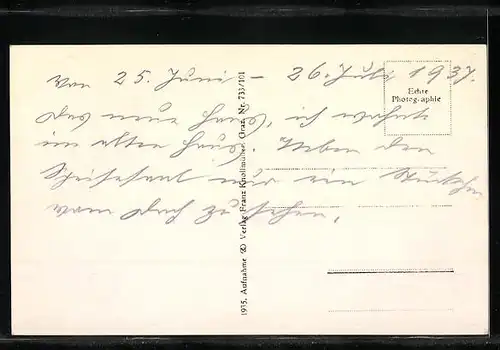 von 25. Juni – 26. Juli 1937.
das neue Haus, ich wohnte
im alten Haus. Neben dem
Speisesaal nur ein Stückchen
vom Dach zu sehen.
Echte
Photographie
1935. Aufnahme u. Verlag Franz Knollmüller, Graz. Nr. 733/101